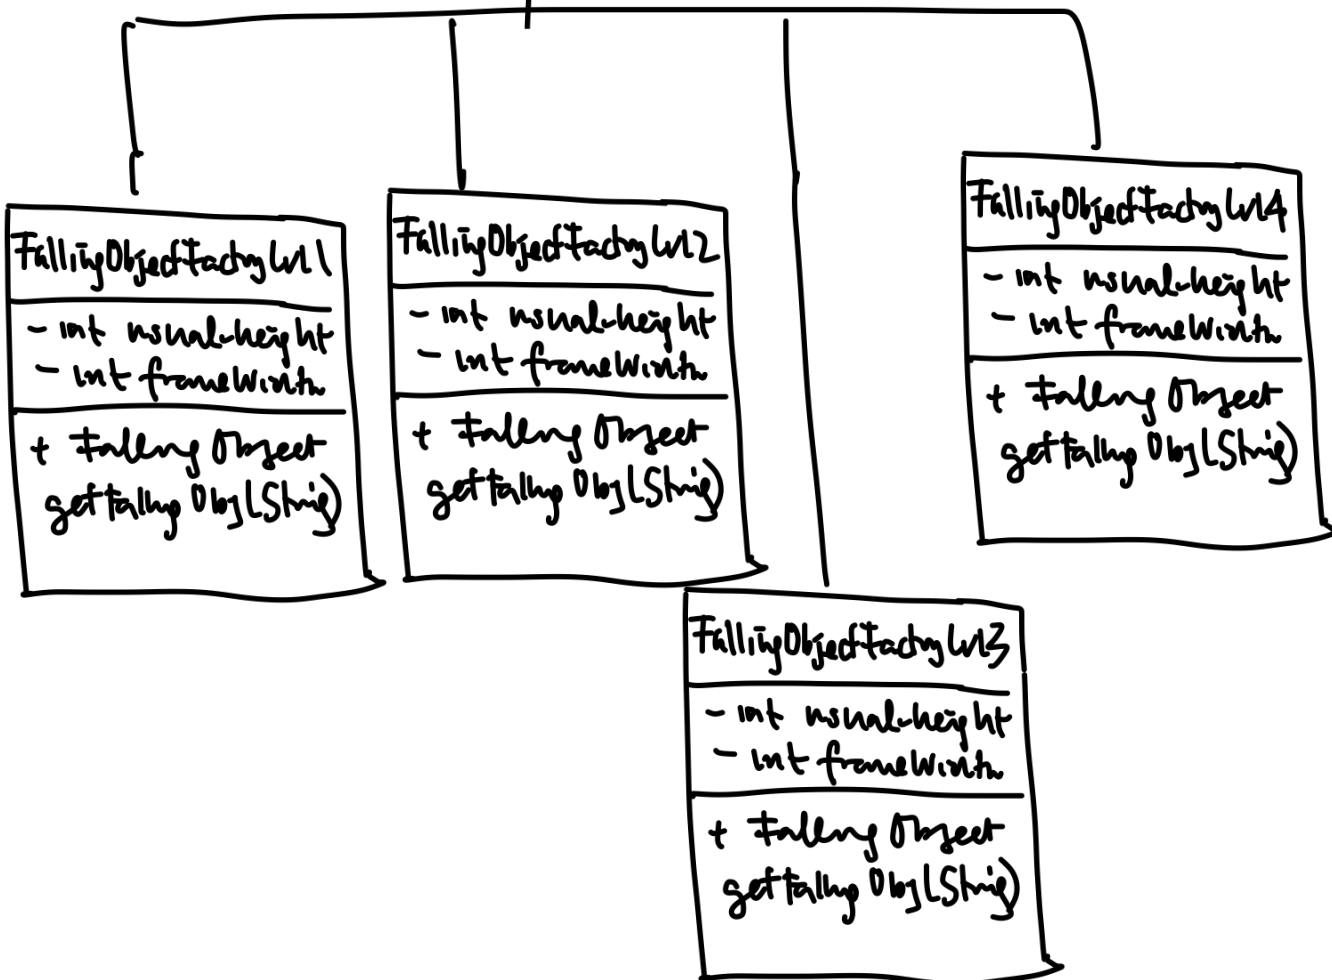 FallingObjectFactoryLvl1
- int usual_height
- int frameWidth
+ Falling Object
getFallingObj(String)
FallingObjectFactoryLvl2
- int usual_height
- int frameWidth
+ Falling Object
getFallingObj(String)
FallingObjectFactoryLvl4
- int usual_height
- int frameWidth
+ Falling Object
getFallingObj(String)
FallingObjectFactoryLvl3
- int usual_height
- int frameWidth
+ Falling Object
getFallingObj(String)